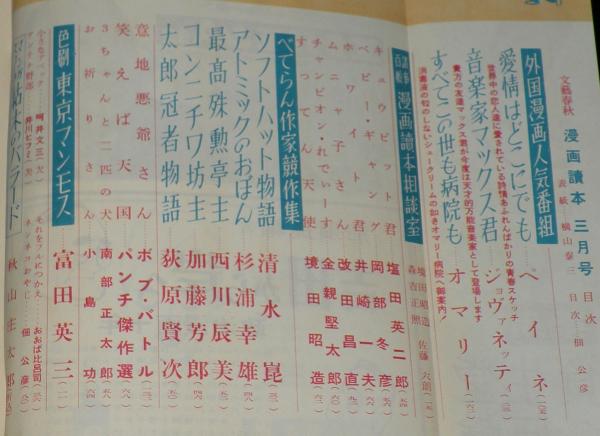 文藝春秋 漫画讀本 三月号 目次
表紙……横山泰三 目次……佃公彦
外国漫画人気番組
愛情はどこにでも ペイネ
世界中の恋人達に愛されている詩情あふれんばかりの青春スケッチ
音楽家マックス君 ジョヴァネッティ
貴方の友達マックス君が今度は天才的万能音楽家として登場します
すべてこの世も病院も オマリー
消毒液の匂のしないシュークリームの如きオマリー病院へ御案内!
漫画讀本相談室
境田昭造 佐藤六朗
森吉正照
キューピット君 塩田英二郎
ベビーギャング 岡部冬彦
ホワイ君 井崎一夫
ムニャ子さん 改田昌直
チャンピオン・れでぃー 金親堅太郎
すってん天使 境田昭造
べてらん作家競作集
ソフトハット物語 清水崑
アトミックのおぼん 杉浦幸雄
最高殊勲亭主 西川辰美
コンニチワ坊主 加藤芳郎
太郎冠者物語 荻原賢次
意地悪爺さん ボブ・バトル
笑えば天国 パンチ傑作選
3ちゃんと二匹の犬 南部正太郎
お祈りさん 小島功
色刷 東京マンモス 富田英三
それをフルにつかえ おおば比呂司
井川ヒフミ
佃公彦
バラード 秋山庄太郎